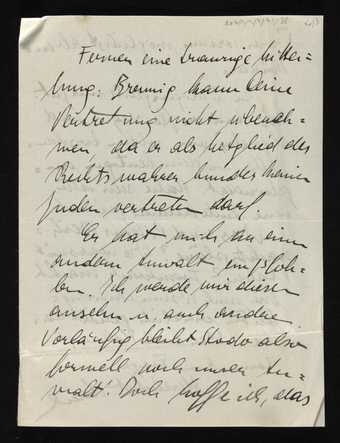 Ferner eine traurige Mittei-
lung: Brennig kann Deine
Vertretung nicht überneh-
men, da er als Mitglied des
Rechtswahrerbundes keinen
Juden vertreten darf.
Er hat mich an einen
andern Anwalt empfoh-
len. Ich werde mir diesen
ansehn u. auch andere.
Vorläufig bleibt also
formell noch unser An-
walt! Doch hoffe ich, das